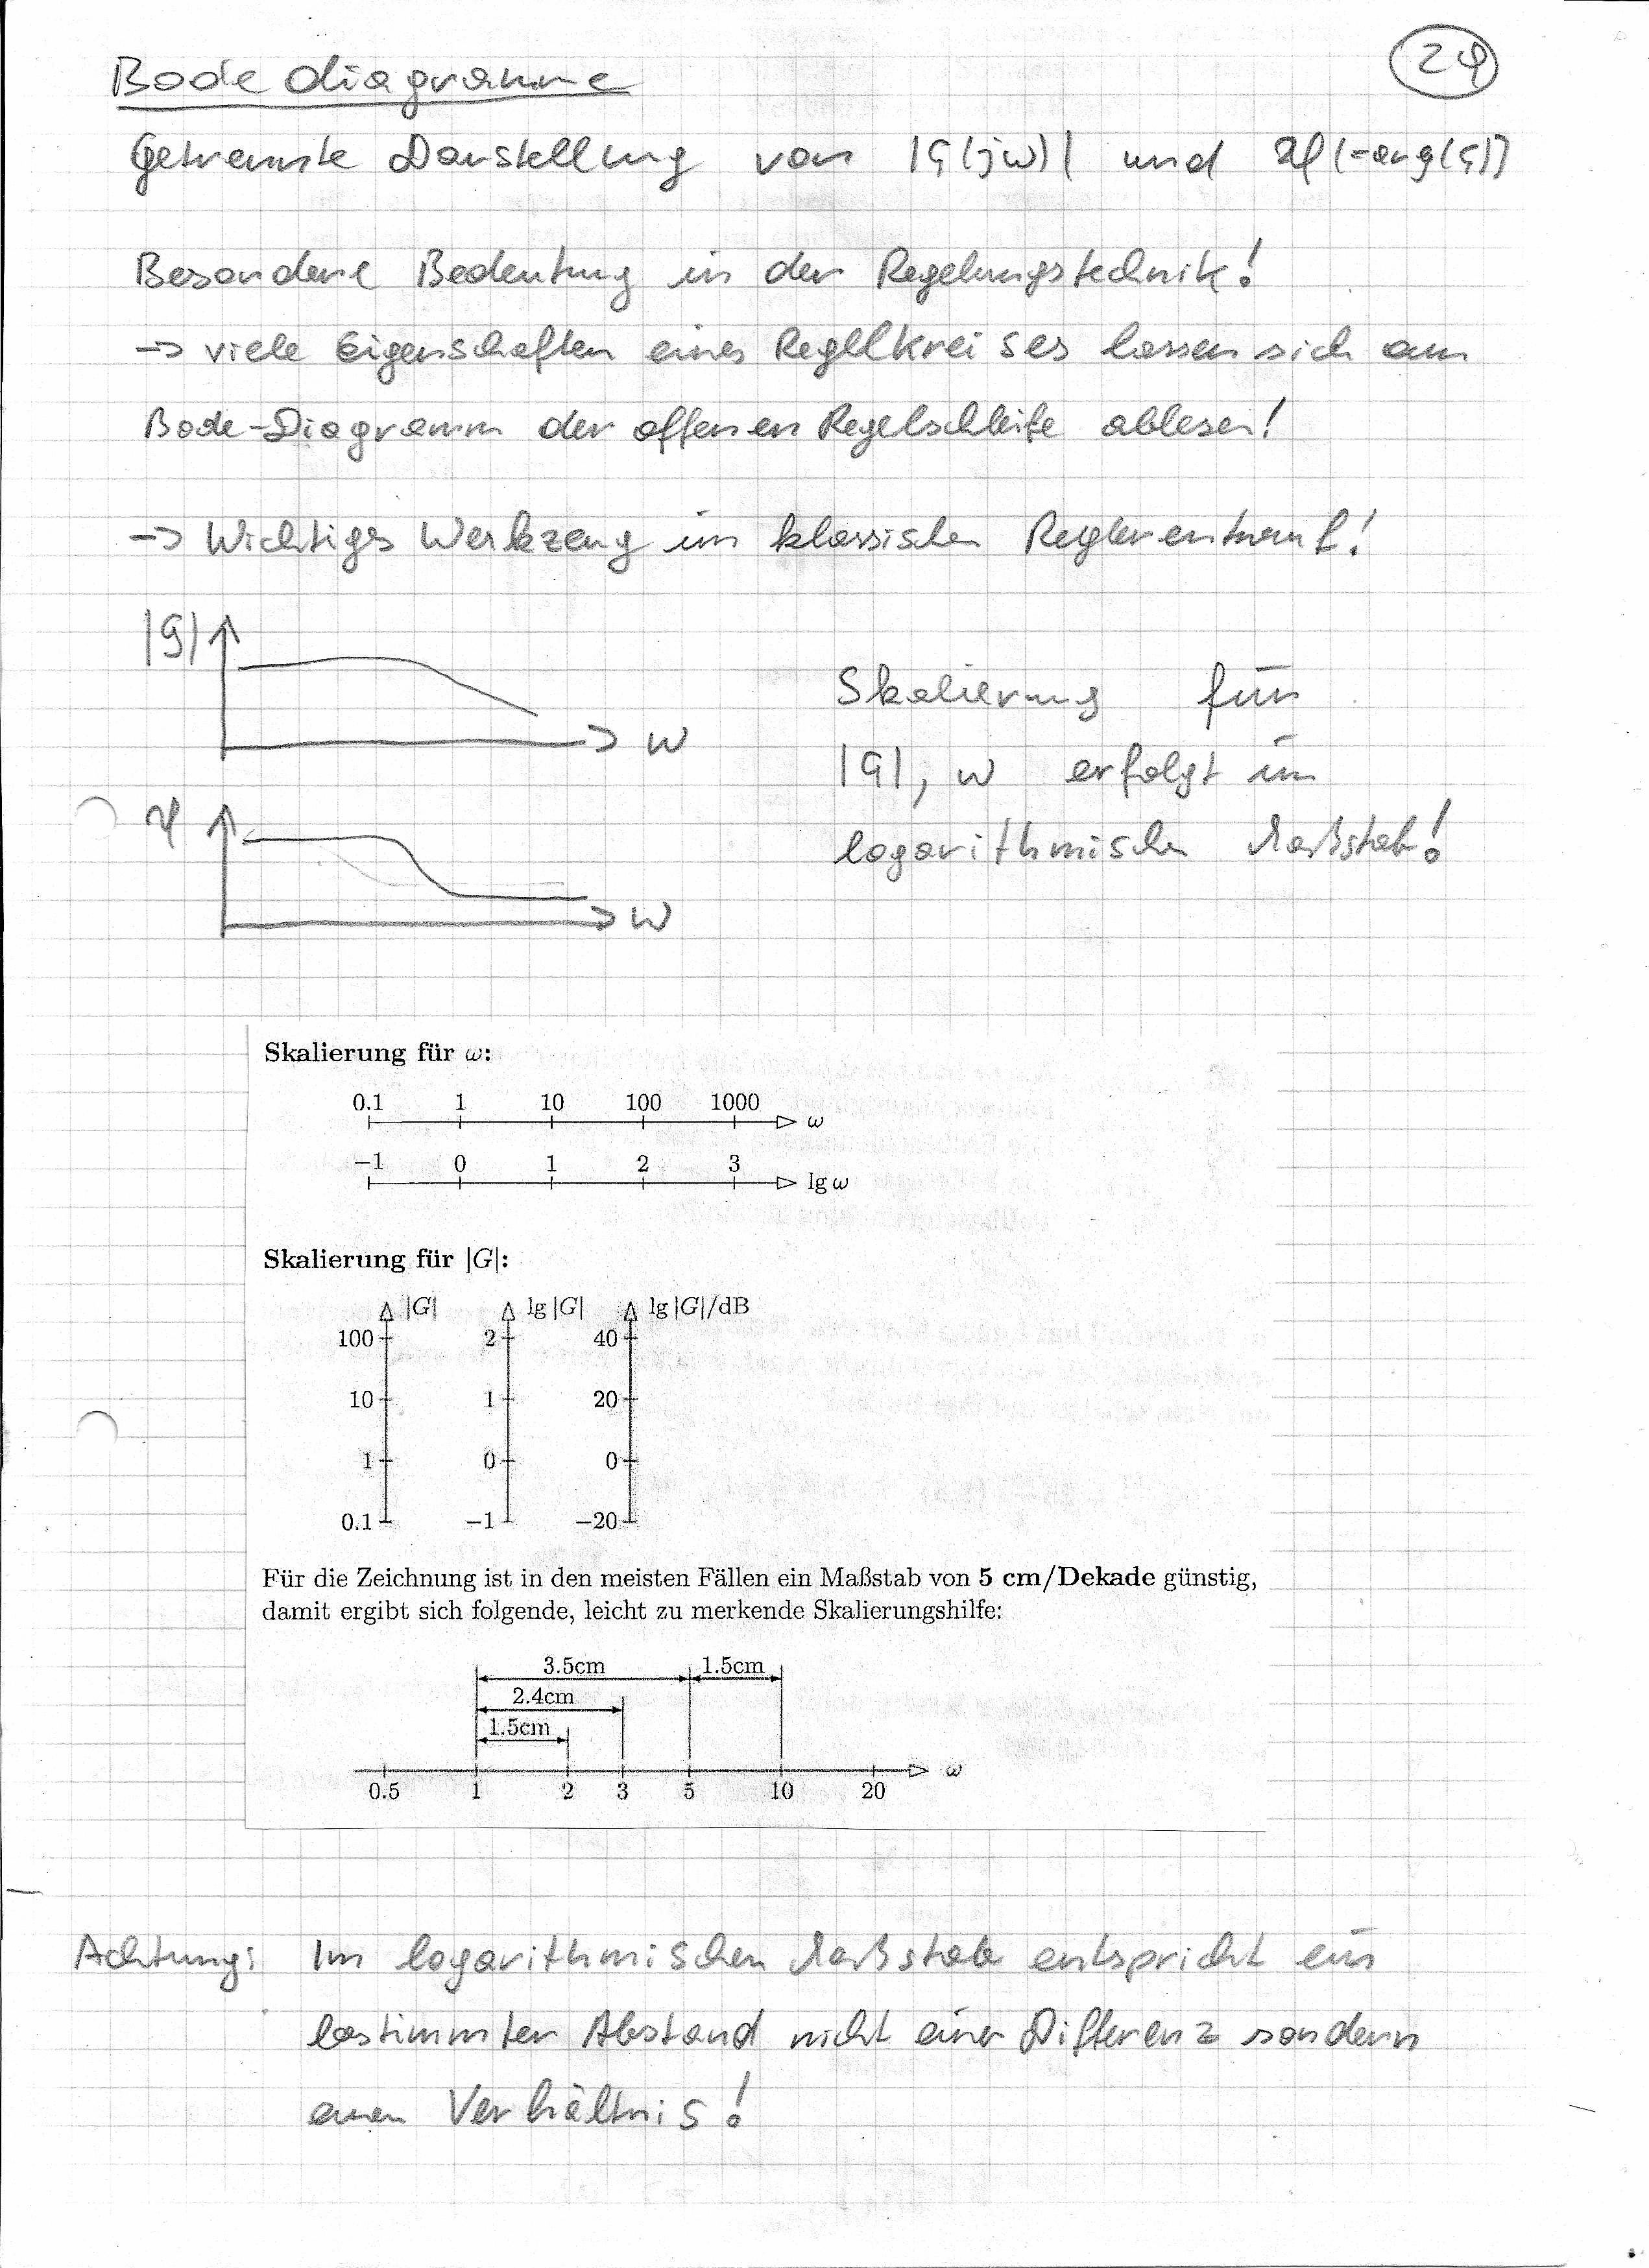 Bodediagramme
24
Getrennte Darstellung von |G(jω)| und φ(=arg(G))
Besondere Bedeutung in der Regelungstechnik!
-> viele Eigenschaften eines Regelkreises lassen sich am
Bode-Diagramm der offenen Regelschleife ablesen!
-> Wichtiges Werkzeug im klassischen Reglerentwurf!
|G|
ω
φ
ω
Skalierung für
|G|, ω erfolgt im
logarithmischen Maßstab!
Skalierung für ω:
0.1 1 10 100 1000 ω
−1 0 1 2 3 lg ω
Skalierung für |G|:
|G| lg |G| lg |G|/dB
100 2 40
10 1 20
1 0 0
0.1 −1 −20
Für die Zeichnung ist in den meisten Fällen ein Maßstab von 5 cm/Dekade günstig,
damit ergibt sich folgende, leicht zu merkende Skalierungshilfe:
3.5cm 1.5cm
2.4cm
1.5cm
ω
0.5 1 2 3 5 10 20
Achtung: Im logarithmischen Maßstab entspricht ein
bestimmter Abstand nicht einer Differenz sondern
einem Verhältnis!